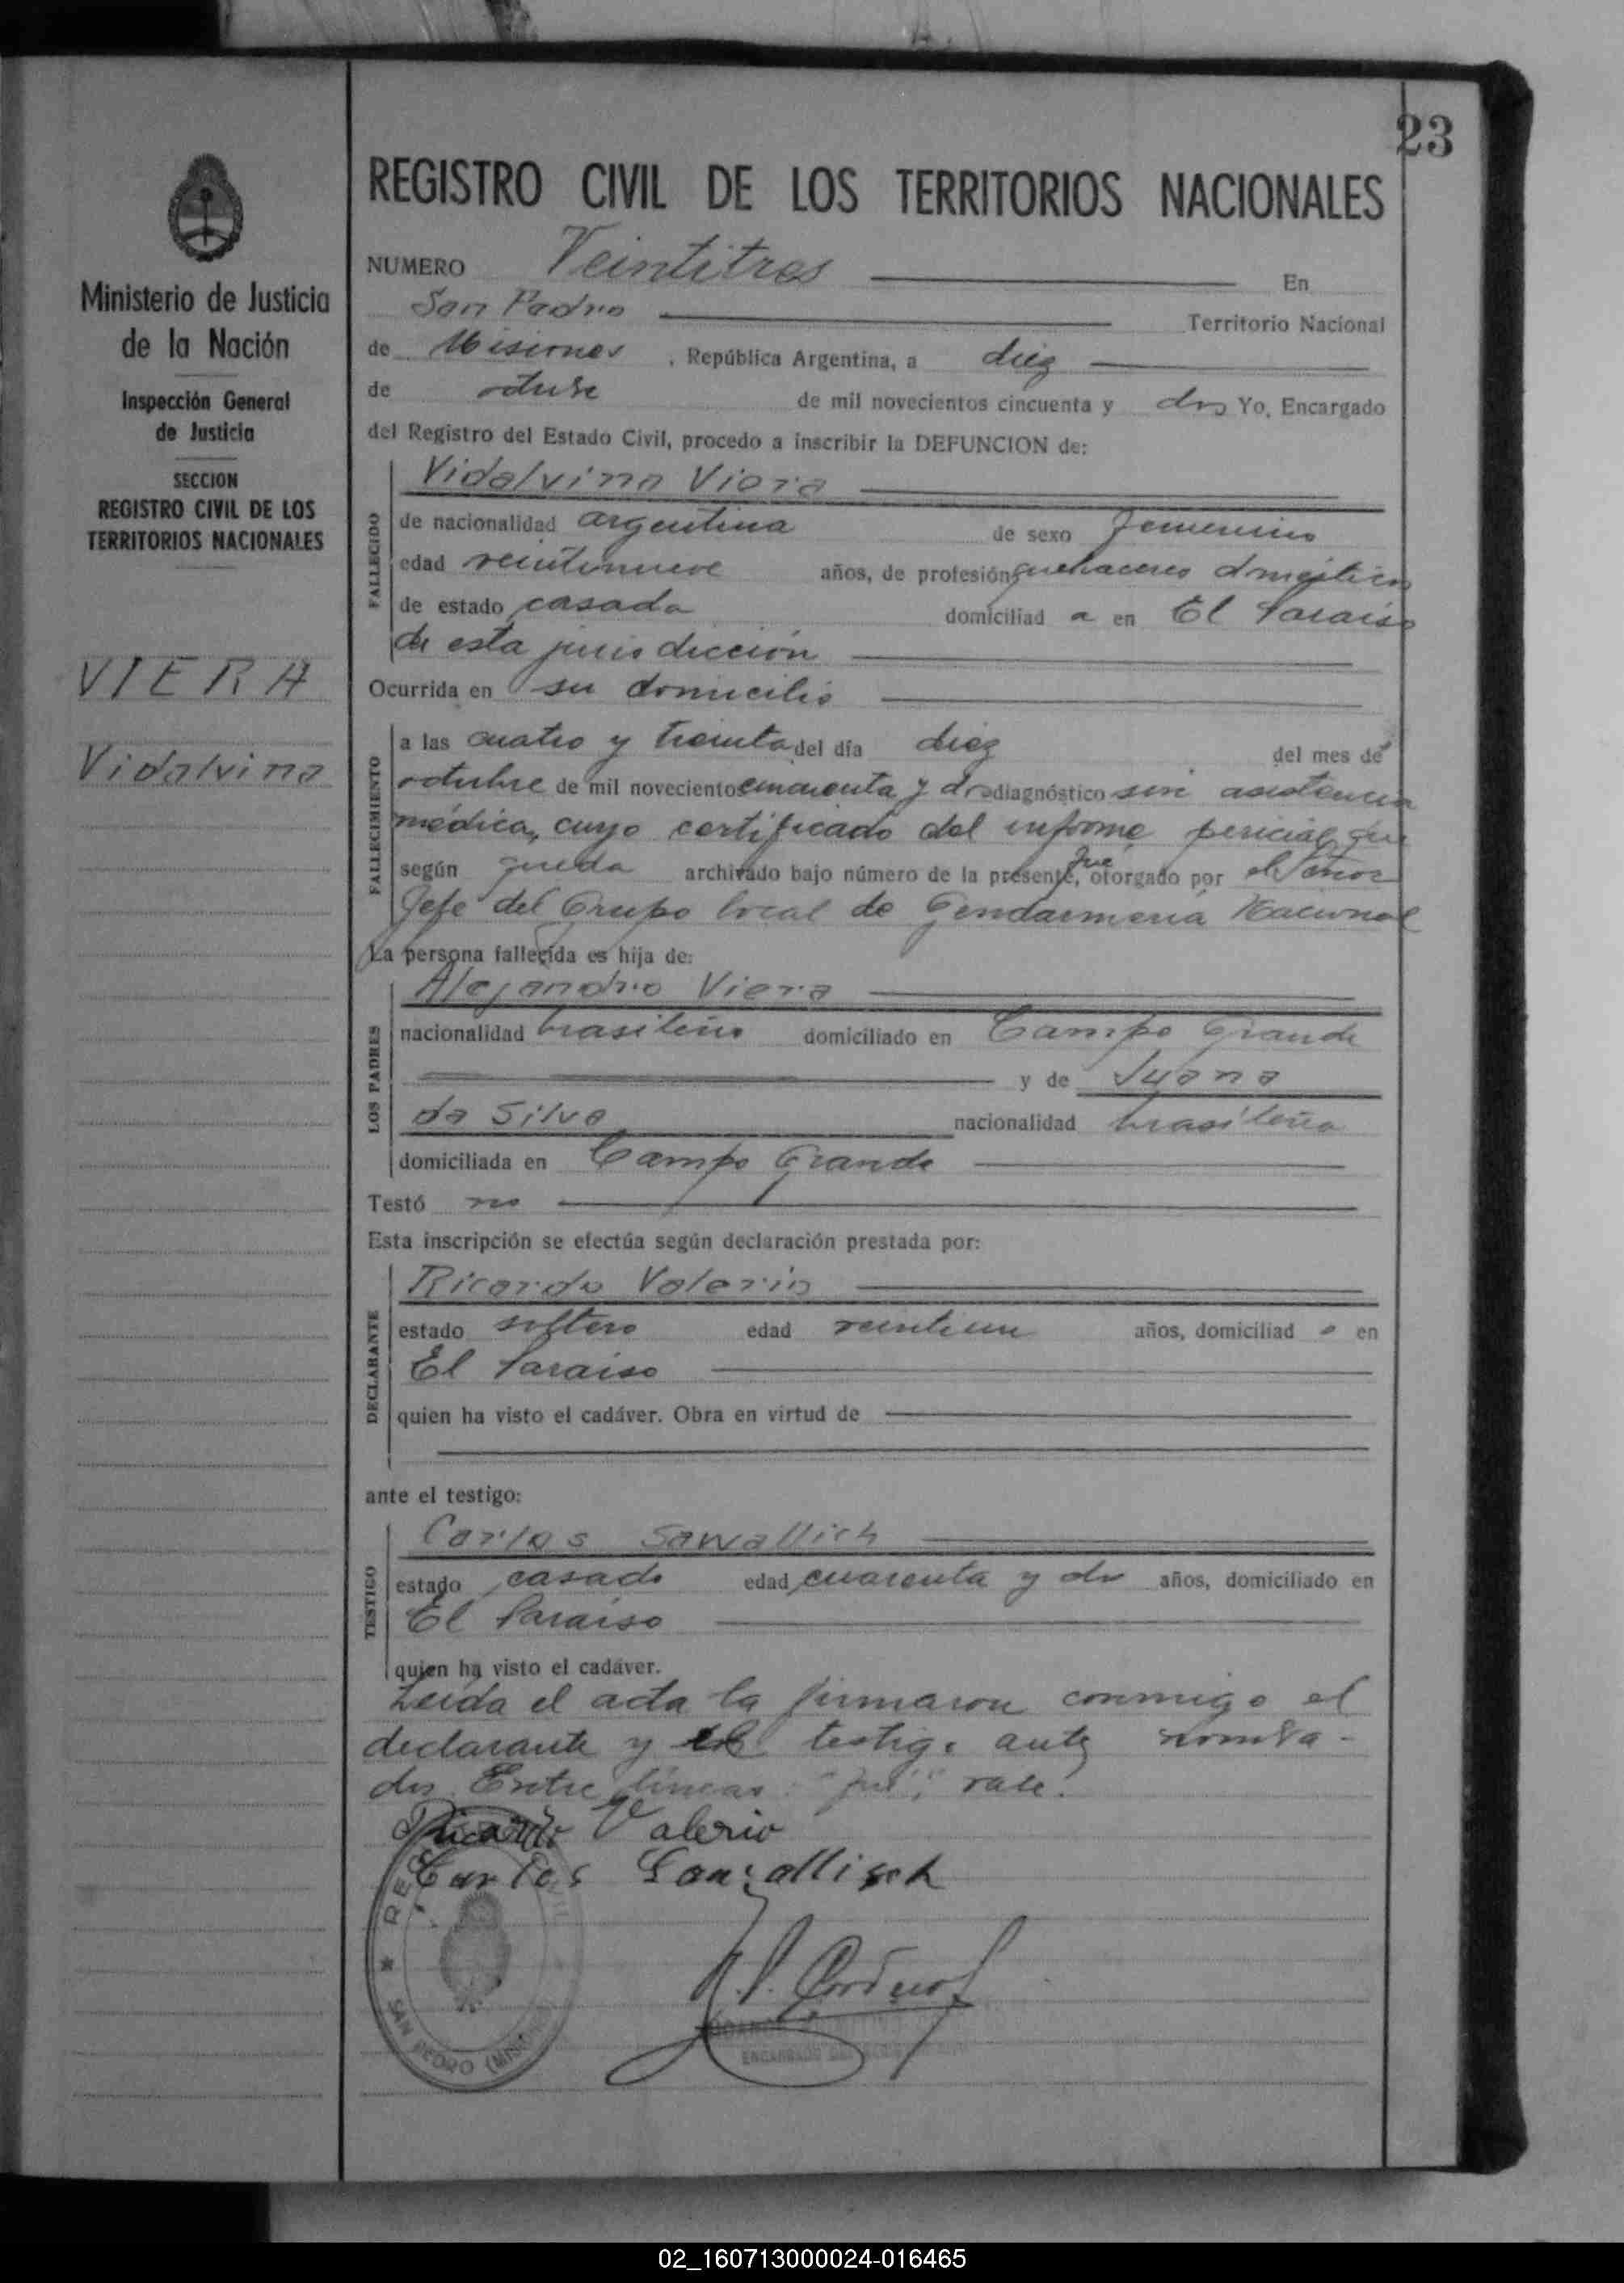 23
REGISTRO CIVIL DE LOS TERRITORIOS NACIONALES
Ministerio de Justicia
de la Nación
Inspección General
de Justicia
SECCION
REGISTRO CIVIL DE LOS
TERRITORIOS NACIONALES
VIERA
Vidalvina
NUMERO Veintitres En
San Pedro Territorio Nacional
de Misiones, República Argentina, a diez
de octubre de mil novecientos cincuenta y dos Yo, Encargado
del Registro del Estado Civil, procedo a inscribir la DEFUNCION de:
FALLECIDO
Vidalvina Viera
de nacionalidad argentina de sexo femenino
edad veintinueve años, de profesión quehaceres domésticos
de estado casada domiciliad a en El Paraiso
de esta jurisdicción
Ocurrida en su domicilio
FALLECIMIENTO
a las cuatro y treinta del día diez del mes de
octubre de mil novecientos cincuenta y dos diagnóstico sin asistencia
médica, cuyo certificado del informe pericial que
según queda archivado bajo número de la presente, fue otorgado por el Señor
Jefe del Grupo local de Gendarmería Nacional
La persona fallecida es hija de:
LOS PADRES
Alejandro Viera
nacionalidad brasileño domiciliado en Campo Grande
y de Juana
da Silva nacionalidad brasileña
domiciliada en Campo Grande
Testó no
Esta inscripción se efectúa según declaración prestada por:
DECLARANTE
Ricardo Valerio
estado soltero edad veintiun años, domiciliad o en
El Paraiso
quien ha visto el cadáver. Obra en virtud de
ante el testigo:
TESTIGO
Carlos Sawallich
estado casado edad cuarenta y dos años, domiciliado en
El Paraiso
quien ha visto el cadáver.
Leída el acta la firmaron conmigo el
declarante y el testigo ante nombra-
dos. Entre líneas: "fue", vale.
Ricardo Valerio
Carlos
SAN PEDRO (MISIONES)
02_160713000024-016465